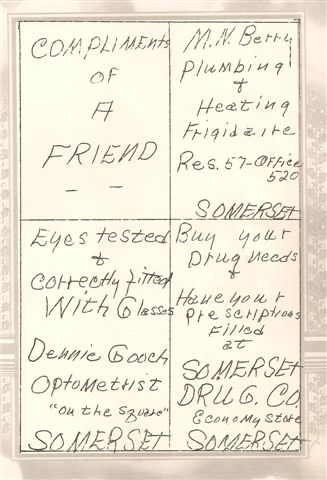 COMPLIMENTS
OF
A
FRIEND
M.N. Berry
Plumbing
+
Heating
Frigidaire
Res. 57-Office
520
SOMERSET
Eyes tested
+
Correctly fitted
With Glasses
Dennie Gooch
Optometrist
"on the square"
SOMERSET
Buy your
Drug needs
+
Have your
prescriptions
Filled
at
SOMERSET
DRUG. CO.
Economy Store
SOMERSET